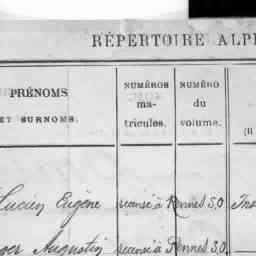 RÉPERTOIRE ALP
PRÉNOMS
ET SURNOMS.
NUMÉROS
ma-
tricules.
NUMÉRO
du
volume.
Lucien Eugène recensé à Rennes S,O
Augustin recensé à Rennes S,O